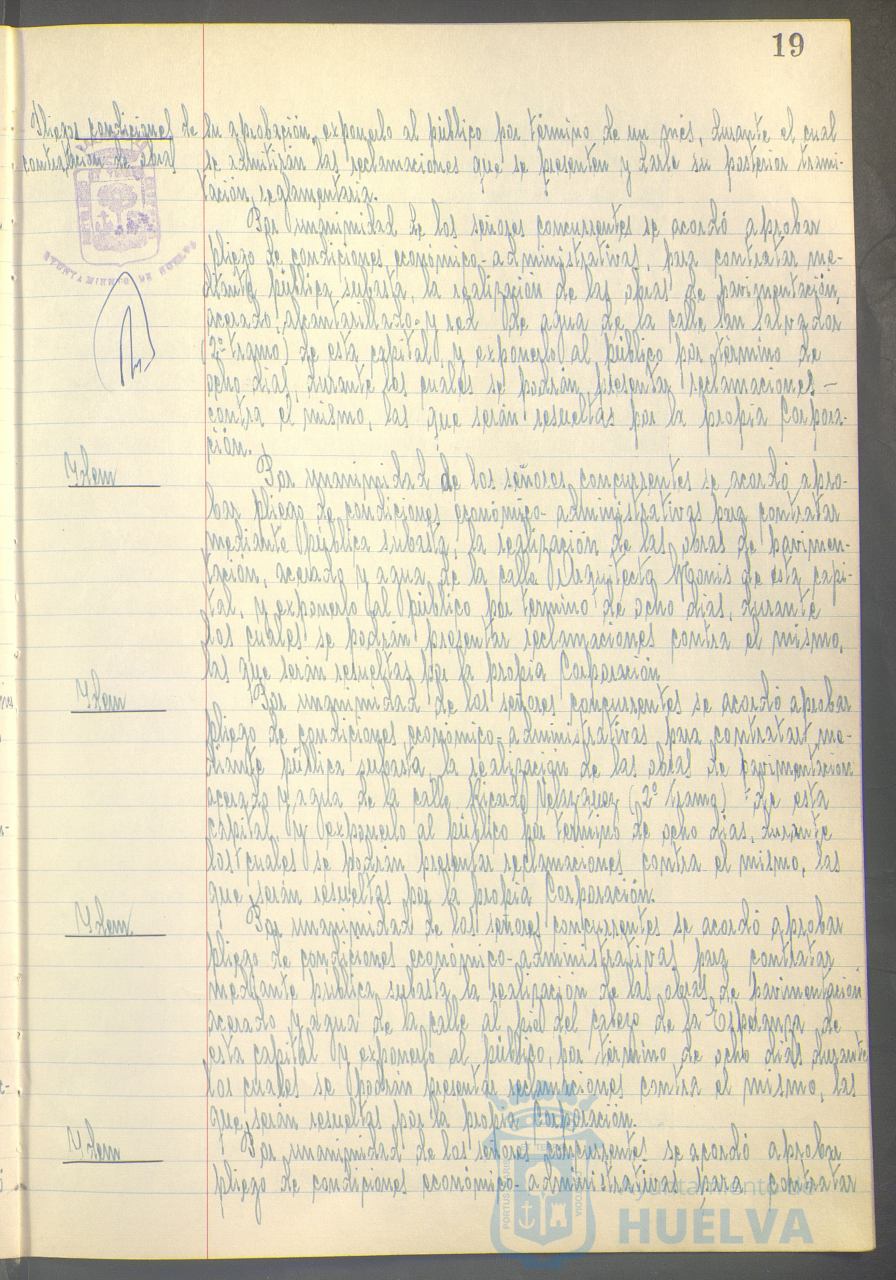 19
Pliegos condiciones de
contratación de obras
su aprobación, exponerlo al público por término de un mes, durante el cual
se admitirán las reclamaciones que se presenten y darle su posterior trami-
tación reglamentaria.
Por unanimidad de los señores concurrentes se acordó aprobar
pliego de condiciones económico-administrativas, para contratar me-
diante pública subasta, la realización de las obras de pavimentación,
acerado, alcantarillado y red de agua de la calle San Salvador
(2º tramo) de esta capital, y exponerlo al público por término de
ocho días, durante los cuales se podrán presentar reclamaciones -
contra el mismo, las que serán resueltas por la propia Corpora-
ción.
AYUNTAMIENTO DE HUELVA
Idem
Por unanimidad de los señores concurrentes se acordó apro-
bar pliego de condiciones económico-administrativas para contratar
mediante pública subasta, la realización de las obras de pavimen-
tación, acerado y agua de la calle Arquitecto Monís de esta capi-
tal, y exponerlo al público por término de ocho días, durante
los cuales se podrán presentar reclamaciones contra el mismo,
las que serán resueltas por la propia Corporación
Idem
Por unanimidad de los señores concurrentes se acordó aprobar
pliego de condiciones económico-administrativas para contratar me-
diante pública subasta, la realización de las obras de pavimentación
acerado y agua de la calle Ricardo Velazquez (2º tramo) de esta
capital y exponerlo al público por término de ocho días, durante
los cuales se podrán presentar reclamaciones contra el mismo, las
que serán resueltas por la propia Corporación.
Idem
Por unanimidad de los señores concurrentes se acordó aprobar
pliego de condiciones económico-administrativas para contratar
mediante pública subasta la realización de las obras de pavimentación
acerado y agua de la calle al pie del cabezo de la Esperanza de
esta capital y exponerlo al público, por término de ocho días durante
los cuales se podrán presentar reclamaciones contra el mismo, las
que serán resueltas por la propia Corporación.
Idem
Por unanimidad de los señores concurrentes se acordó aprobar
pliego de condiciones económico-administrativas para contratar
Ayuntamiento de
HUELVA